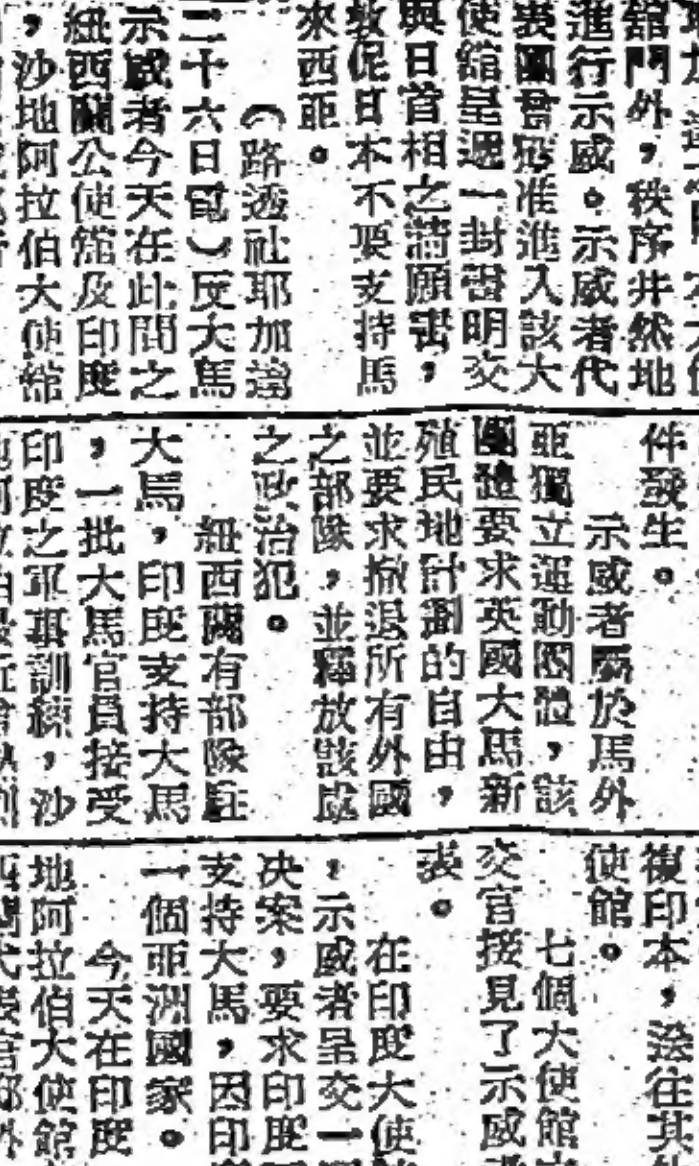 館門外，秩序井然地
進行示威。示威者代
表團曾獲准進入該大
使館呈遞一封書明交
與日首相之請願書，
敦促日本不要支持馬
來西亞。
（路透社耶加達
二十六日電）反大馬
示威者今天在此間之
紐西蘭公使館及印度
，沙地阿拉伯大使館
件發生。
示威者屬於馬外
亞獨立運動團體，該
團體要求英國大馬新
殖民地計劃的自由，
並要求撤退所有外國
之部隊，並釋放該處
之政治犯。
紐西蘭有部隊駐
大馬，印度支持大馬
，一批大馬官員接受
印度之軍事訓練，沙
複印本，送往其他
使館。
七個大使館
交官接見了示威者
表。
在印度大使
，示威者呈交一
決案，要求印度
支持大馬，因印
一個亞洲國家。
今天在印度
地阿拉伯大使館